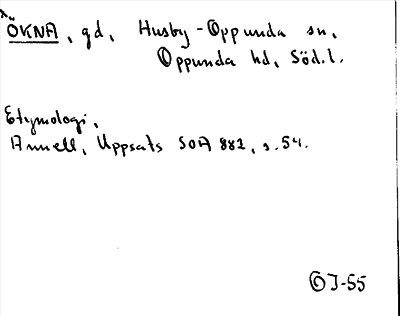 ÖKNA, gd, Husby-Oppunda sn,
Oppunda hd, Södl.
Etymologi,
Annell, Uppsats SOA 882, s. 54.
OJ-55